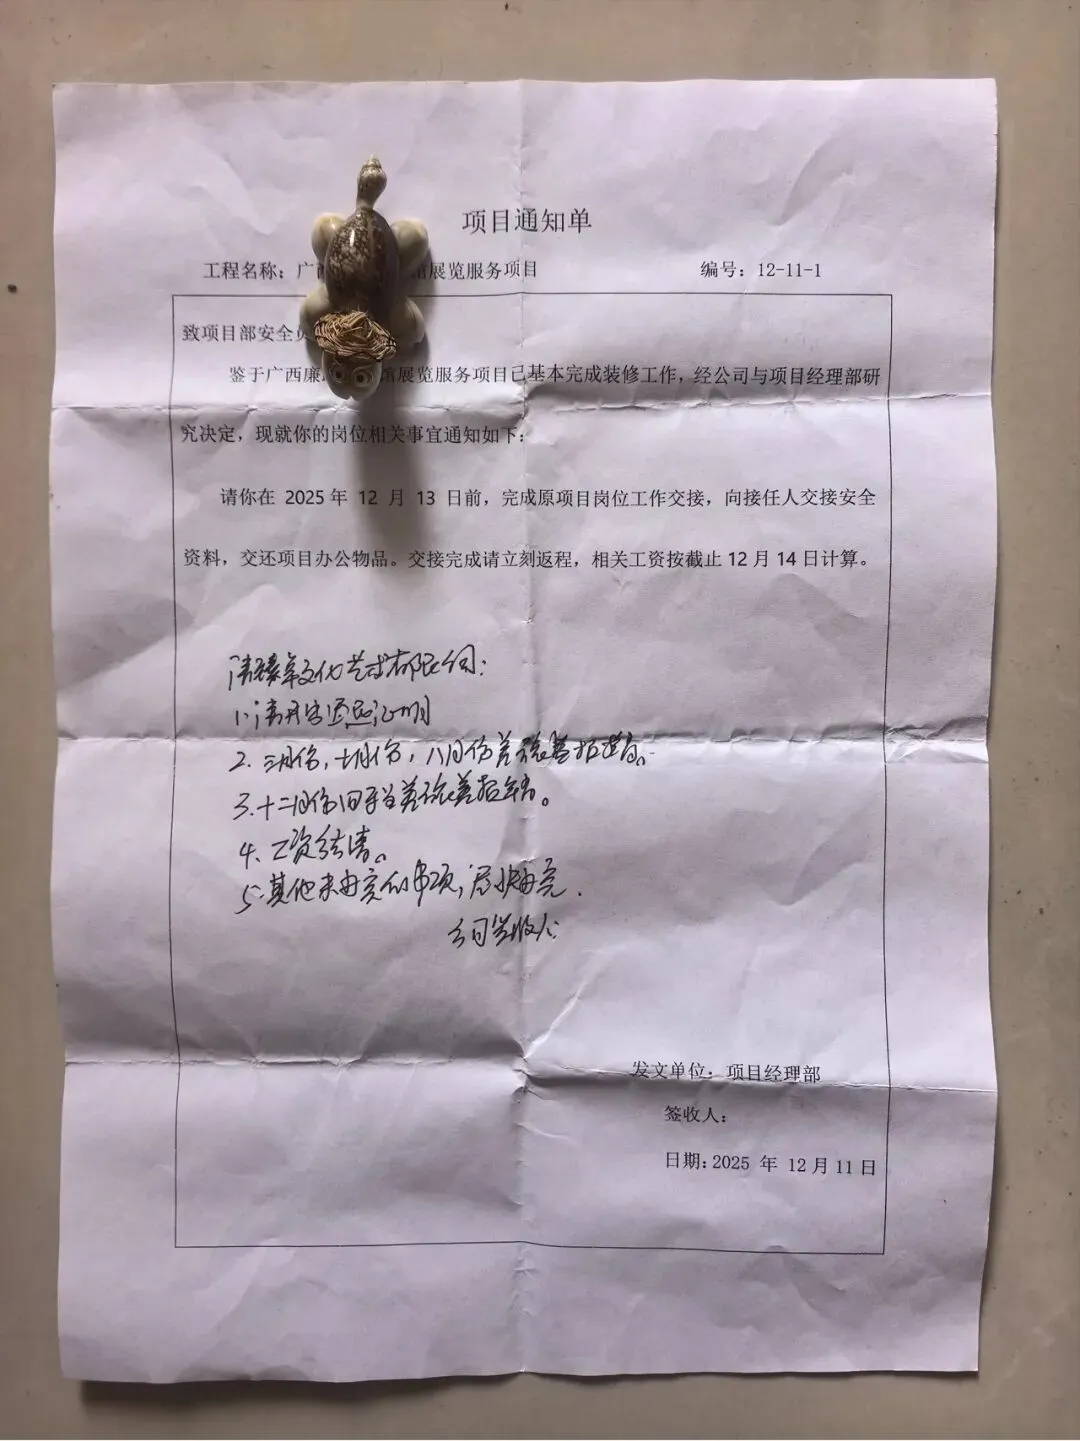 项目通知单
工程名称：广西 馆展览服务项目 编号：12-11-1
致项目部安全员
鉴于广西廉 馆展览服务项目已基本完成装修工作，经公司与项目经理部研
究决定，现就你的岗位相关事宜通知如下：
请你在 2025 年 12 月 13 日前，完成原项目岗位工作交接，向接任人交接安全
资料，交还项目办公物品。交接完成请立刻返程，相关工资按截止 12 月 14 日计算。
文化艺术有限公司：
1.请开 证明
2. 三月份，七月份，八月份差旅费报销。
3.十二月份回 差旅费报销。
4.工资结清。
5.其他未 的事项，尽快
公司签收人：
发文单位：项目经理部
签收人：
日期：2025 年 12 月 11 日